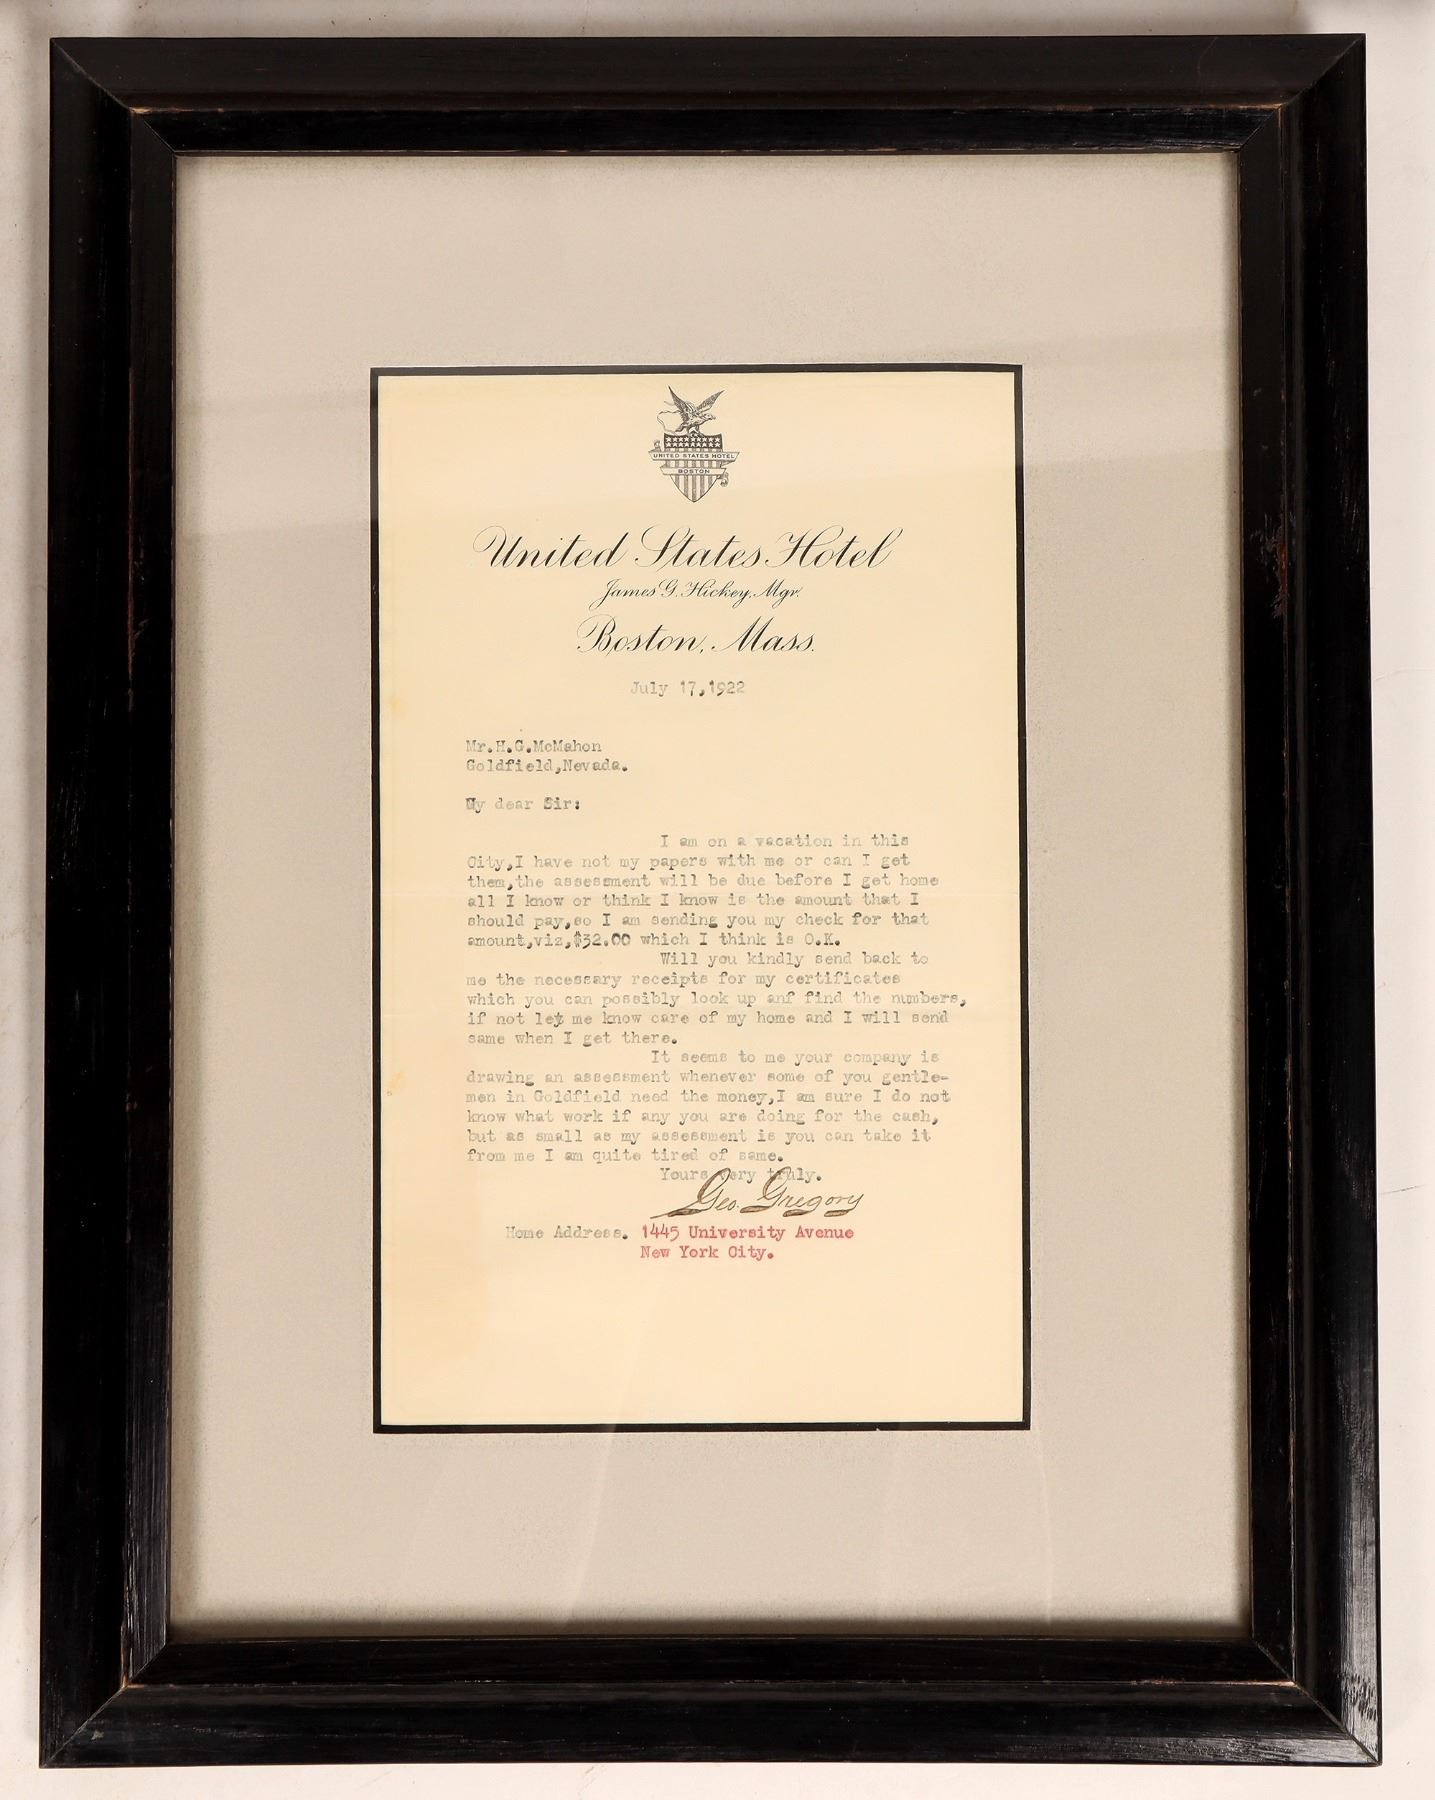 UNITED STATES HOTEL
BOSTON
United States Hotel
James G. Hickey, Mgr.
Boston, Mass.
July 17,1922
Mr.H.G.McMahon
Goldfield,Nevada.
My dear Sir:
I am on a vacation in this
City,I have not my papers with me or can I get
them,the assessment will be due before I get home
all I know or think I know is the amount that I
should pay,so I am sending you my check for that
amount,viz,$32.00 which I think is O.K.
Will you kindly send back to
me the necessary receipts for my certificates
which you can possibly look up anf find the numbers,
if not let me know care of my home and I will send
same when I get there.
It seems to me your company is
drawing an assessment whenever some of you gentle-
men in Goldfield need the money,I am sure I do not
know what work if any you are doing for the cash,
but as small as my assessment is you can take it
from me I am quite tired of same.
Yours very truly.
Geo. Gregory
Home Address. 1445 University Avenue
New York City.